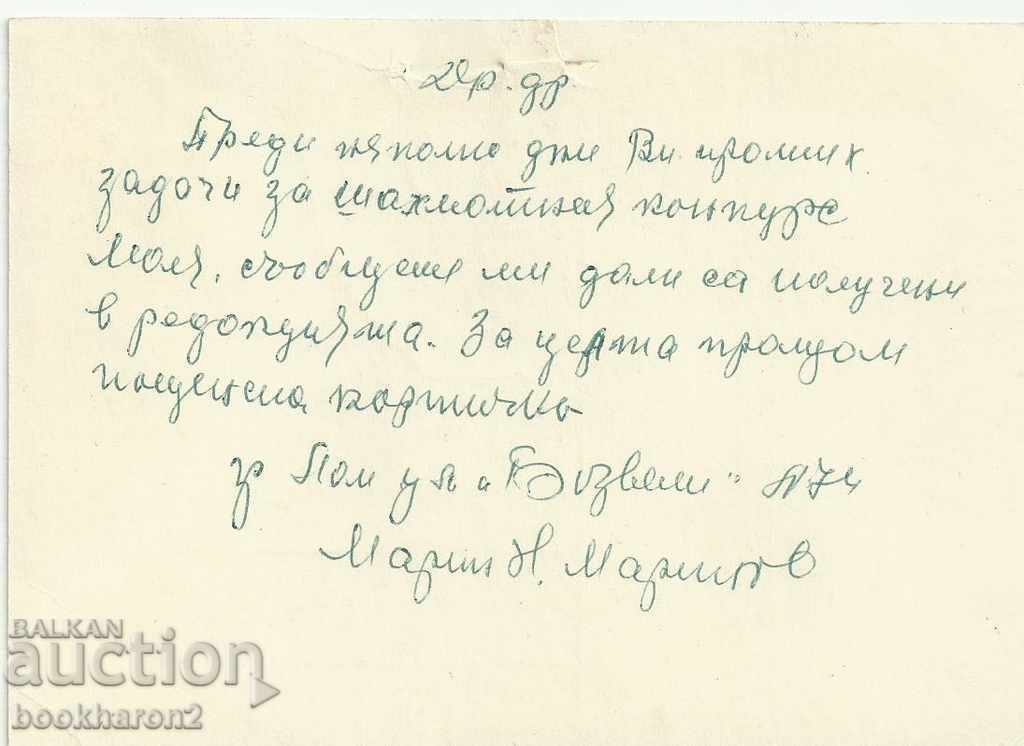 Др. др.
Преди няколко дни Ви пролших
задачи за шахматния конкурс
Моля, съобщете ми дали са получени
в редакцията. За целта пролщам
пощенска картичка
гр Лом ул „Бозвели" №74
Марин Н. Маринов
BALKAN
auction
bookharon2